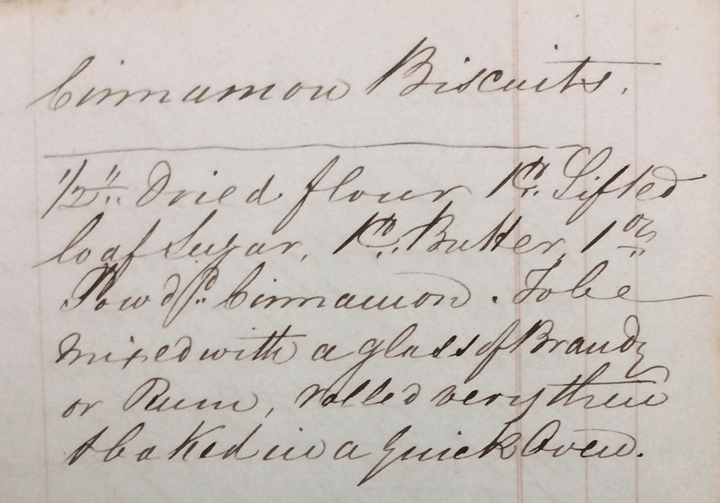 Cinnamon Biscuits.
1/2 " Dried flour 1 lb. Sifted
loaf Sugar, 1 lb. Butter, 1 oz
Powdd. Cinnamon. To be
mixed with a glass of Brandy
or Rum, rolled very thin
& baked in a quick Oven.